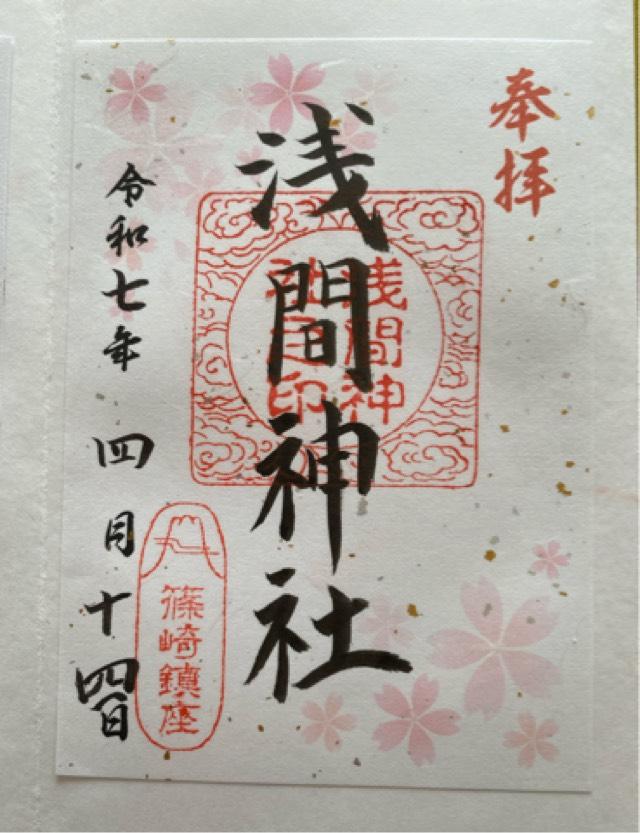 奉拝
浅間神社
浅間神
社之印
令和七年 四月十四日
篠崎鎮座